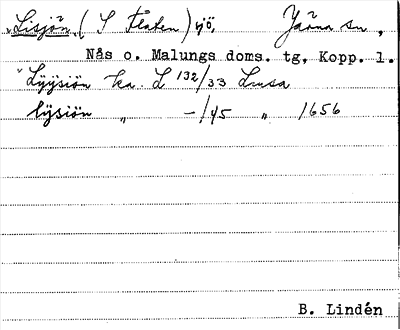 "Lisjön, (S Flaten) sjö, Järna sn,
Nås o. Malungs doms. tg, Kopp. l.
"Lyÿsiön ka. L 132/33
lÿsiön " -/45 " 1656
B. Lindén